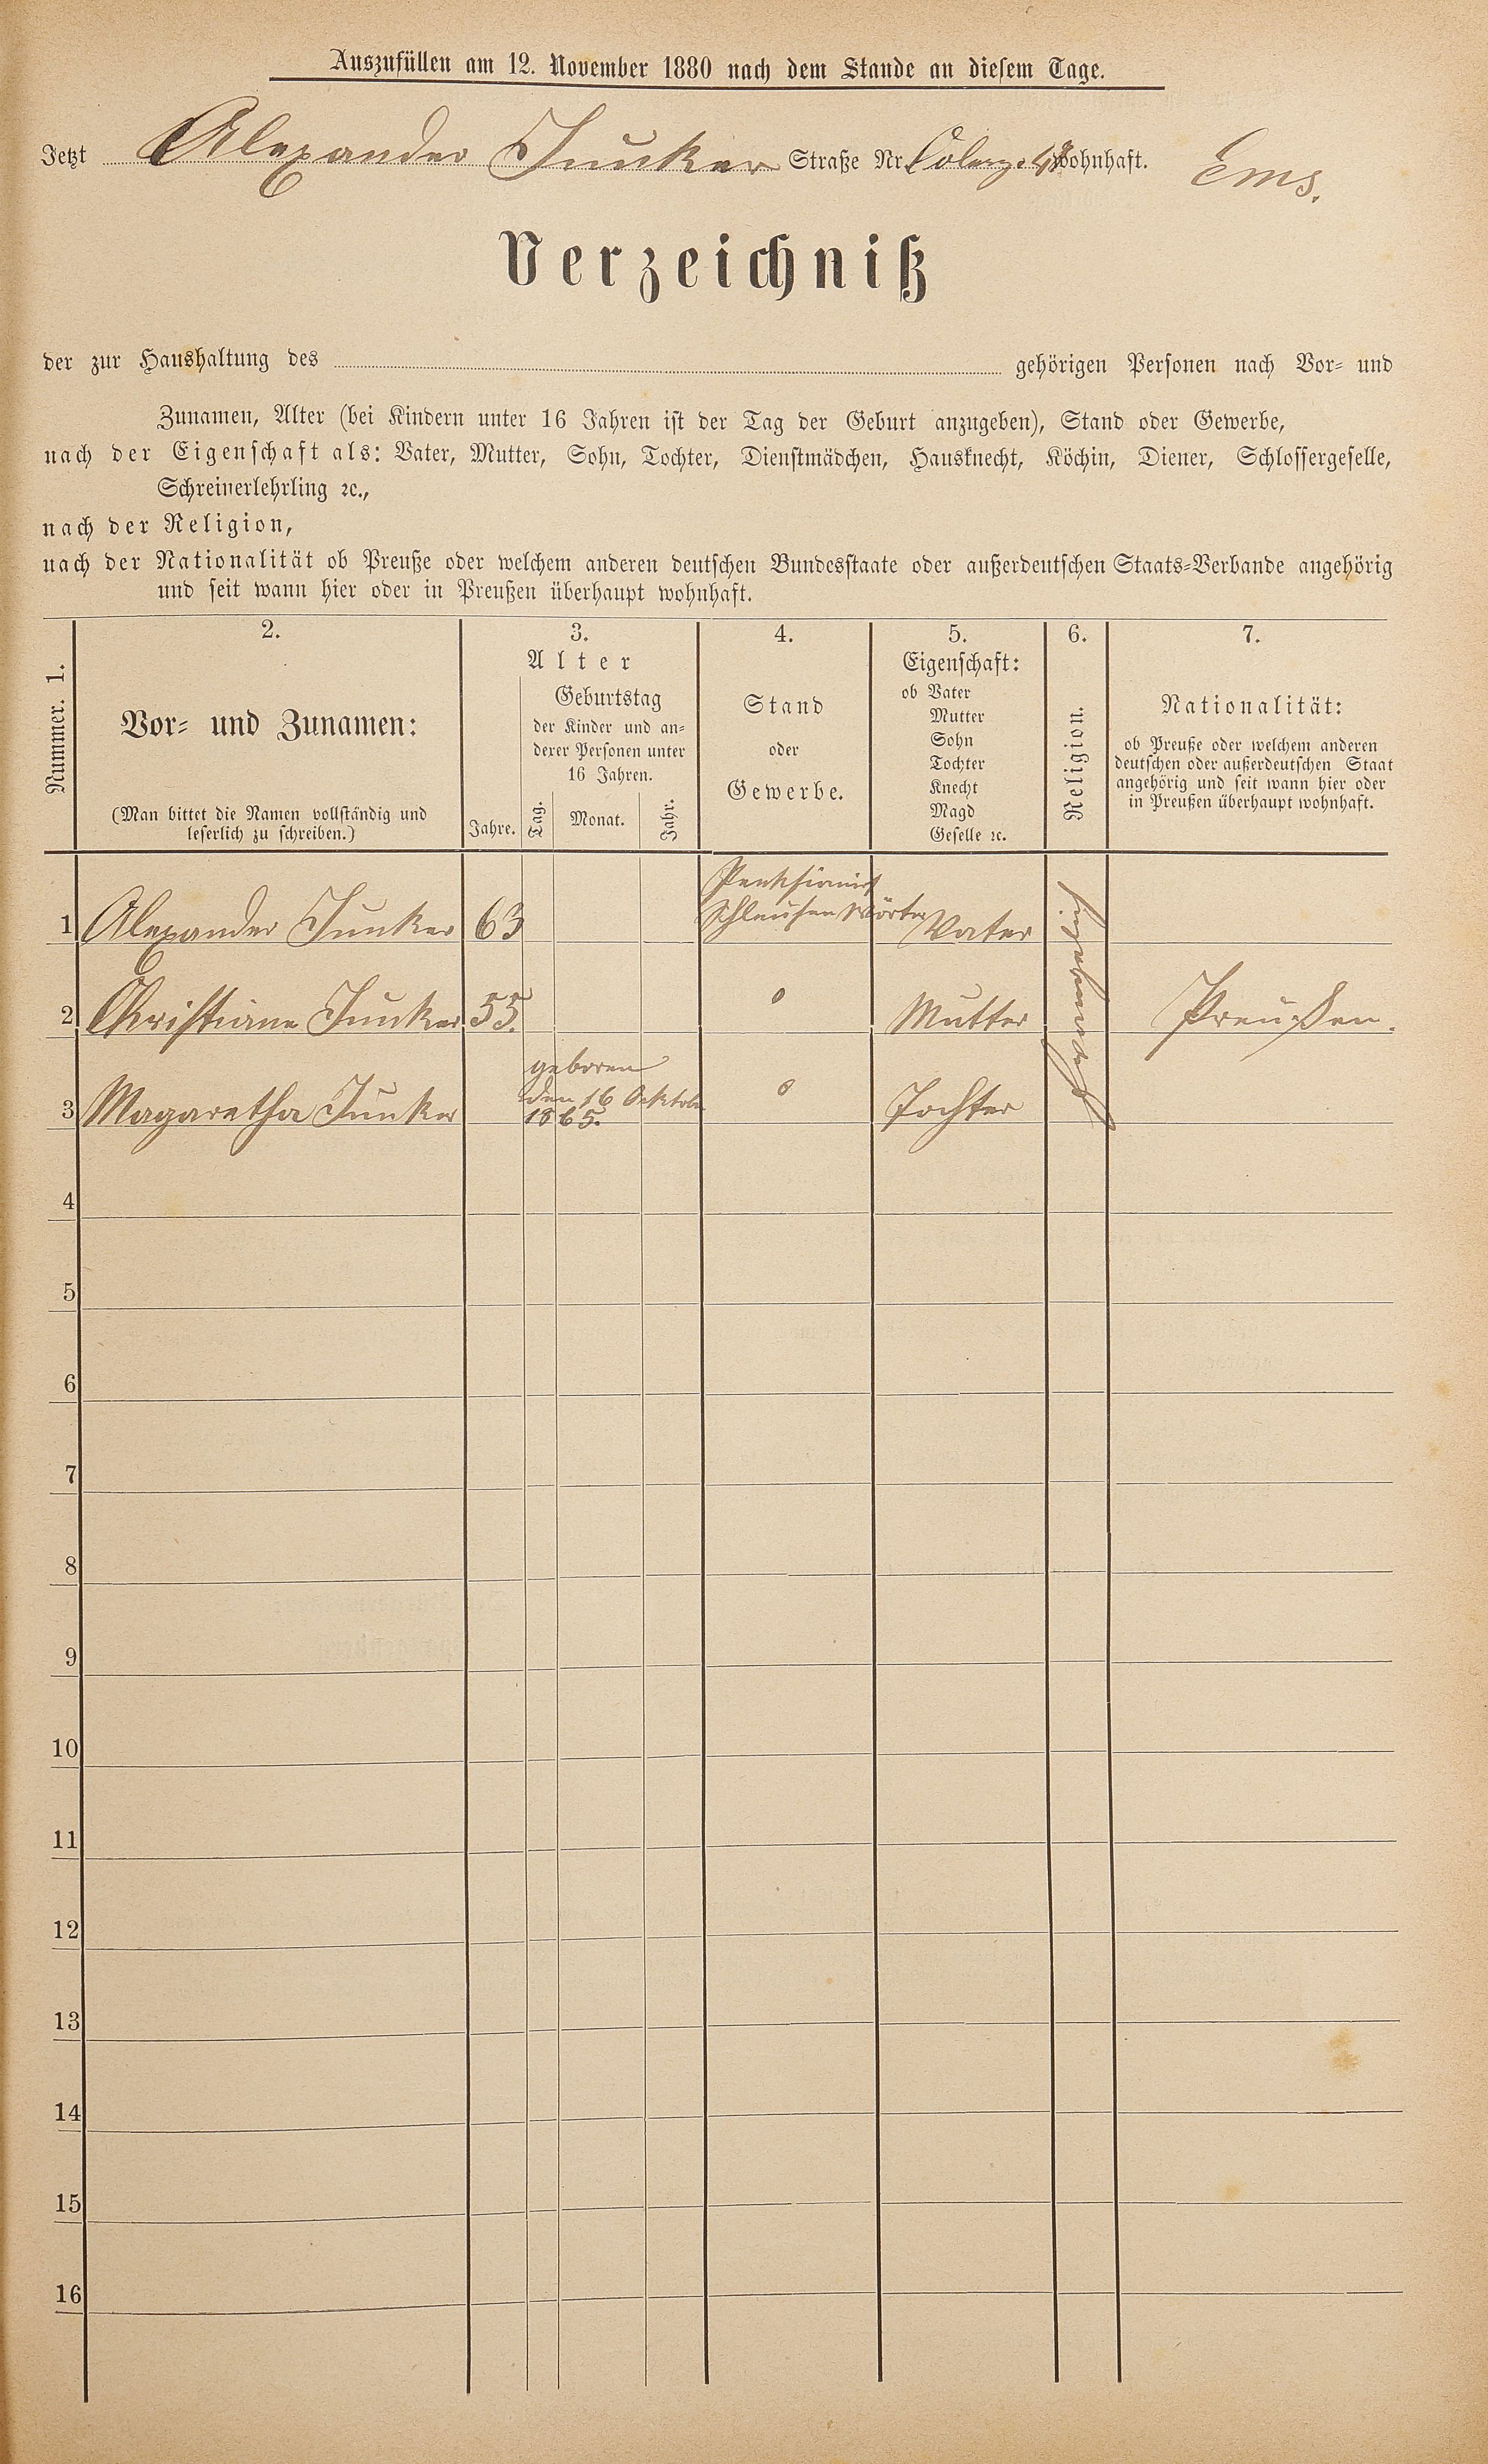 Auszufüllen am 12. November 1880 nach dem Stande an diesem Tage.
Jetzt Alexander Junker Straße Nr. wohnhaft. Ems.
Verzeichniß
der zur Haushaltung des gehörigen Personen nach Vor- und
Zunamen, Alter (bei Kindern unter 16 Jahren ist der Tag der Geburt anzugeben), Stand oder Gewerbe,
nach der Eigenschaft als: Vater, Mutter, Sohn, Tochter, Dienstmädchen, Hausknecht, Köchin, Diener, Schlossergeselle,
Schreinerlehrling ꝛc.,
nach der Religion,
nach der Nationalität ob Preuße oder welchem anderen deutschen Bundesstaate oder außerdeutschen Staats-Verbande angehörig
und seit wann hier oder in Preußen überhaupt wohnhaft.
Nummer. 1.
2.
Vor- und Zunamen:
(Man bittet die Namen vollständig und
leserlich zu schreiben.)
3.
Alter
Jahre.
Geburtstag
der Kinder und an-
derer Personen unter
16 Jahren.
Tag.
Monat.
Jahr.
4.
Stand
oder
Gewerbe.
5.
Eigenschaft:
ob Vater
Mutter
Sohn
Tochter
Knecht
Magd
Geselle ꝛc.
6.
Religion.
7.
Nationalität:
ob Preuße oder welchem anderen
deutschen oder außerdeutschen Staat
angehörig und seit wann hier oder
in Preußen überhaupt wohnhaft.
1 Alexander Junker 63 Schleusen Wörter Vater
2 Christiane Junker 55. o Mutter Preußen.
3 Magaretha Junker geboren den 16 Ocktober 1865. o Tochter
4
5
6
7
8
9
10
11
12
13
14
15
16